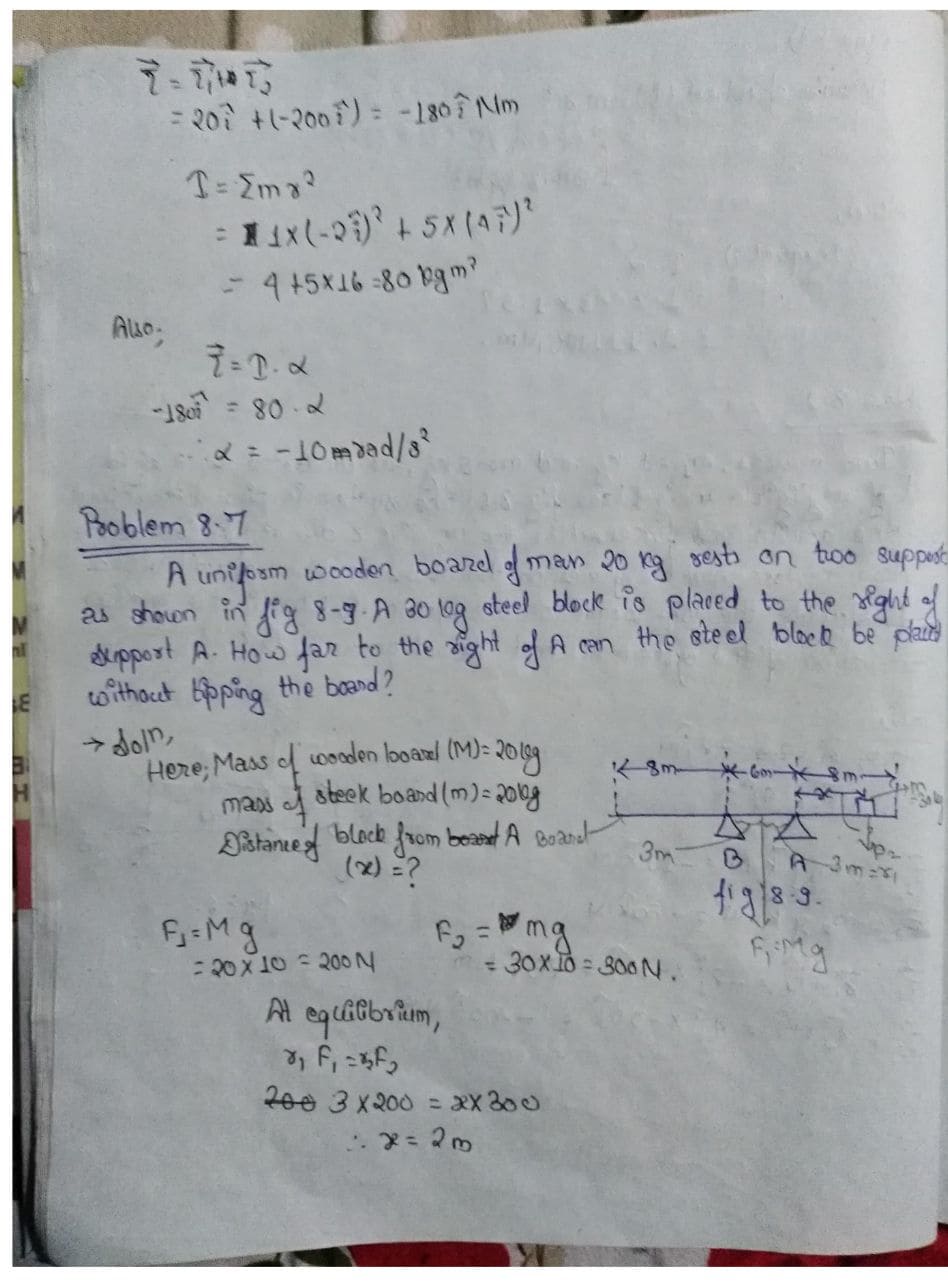 τ⃗ = τ⃗₁ + τ⃗₂
= 20î + (-200î) = -180î Nm
I = Σmr²
= 1x(-2î)² + 5x(4î)²
= 4+5x16 = 80 kgm²
Also;
τ⃗ = I.α
-180î = 80.α
∴ α = -10 rad/s²
Problem 8.7
A uniform wooden board of mass 20 kg rests on two support
as shown in fig 8-9. A 30 kg steel block is placed to the right of
support A. How far to the right of A can the steel block be placed
without tipping the board?
→ Soln,
Here; Mass of wooden board (M) = 20kg
mass of steek board (m) = 20kg
Distance of block from board A
(x) = ?
8m 6m 8m
x m = 30kg
Board
3m B A 3m = r₁
F₂
fig 8.9.
F₁ = Mg
F₁ = Mg F₂ = mg
= 20 x 10 = 200N = 30x10 = 300N.
At equilibrium,
r₁ F₁ = r₂F₂
200 3 x 200 = x x 300
∴ x = 2m